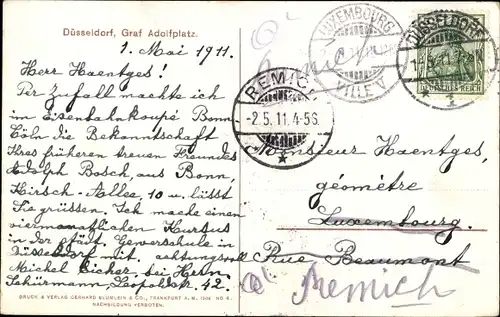 Düsseldorf, Graf Adolfplatz.
1. Mai 1911.
Herr Haentges!
Per Zufall machte ich
im Eisenbahnkoupé Bonn
Cöln die Bekanntschaft
Ihres früheren treuen Freundes
Adolph Bosch, aus Bonn,
Hirsch-Allee, 10 u. lässt
Sie grüssen. Ich mache einen
viermonatlichen Kursus
in der städt. Gewerschule in
Düsseldorf mit achtungsvoll
Michel Bicher, bei Herrn
Schürmann, Leopoldstr. 42.
BRUCK & VERLAG GERHARD BLÜMLEIN & CO., FRANKFURT A. M.
NACHBILDUNG VERBOTEN.
LUXEMBOURG
VILLE
REMICH
-2.5.11.4-5S.
DÜSSELDORF
1
DEUTSCHES REICH
Remich
Monsieur Haentges,
géomètre
Luxembourg.
Rue Beaumont
Remich